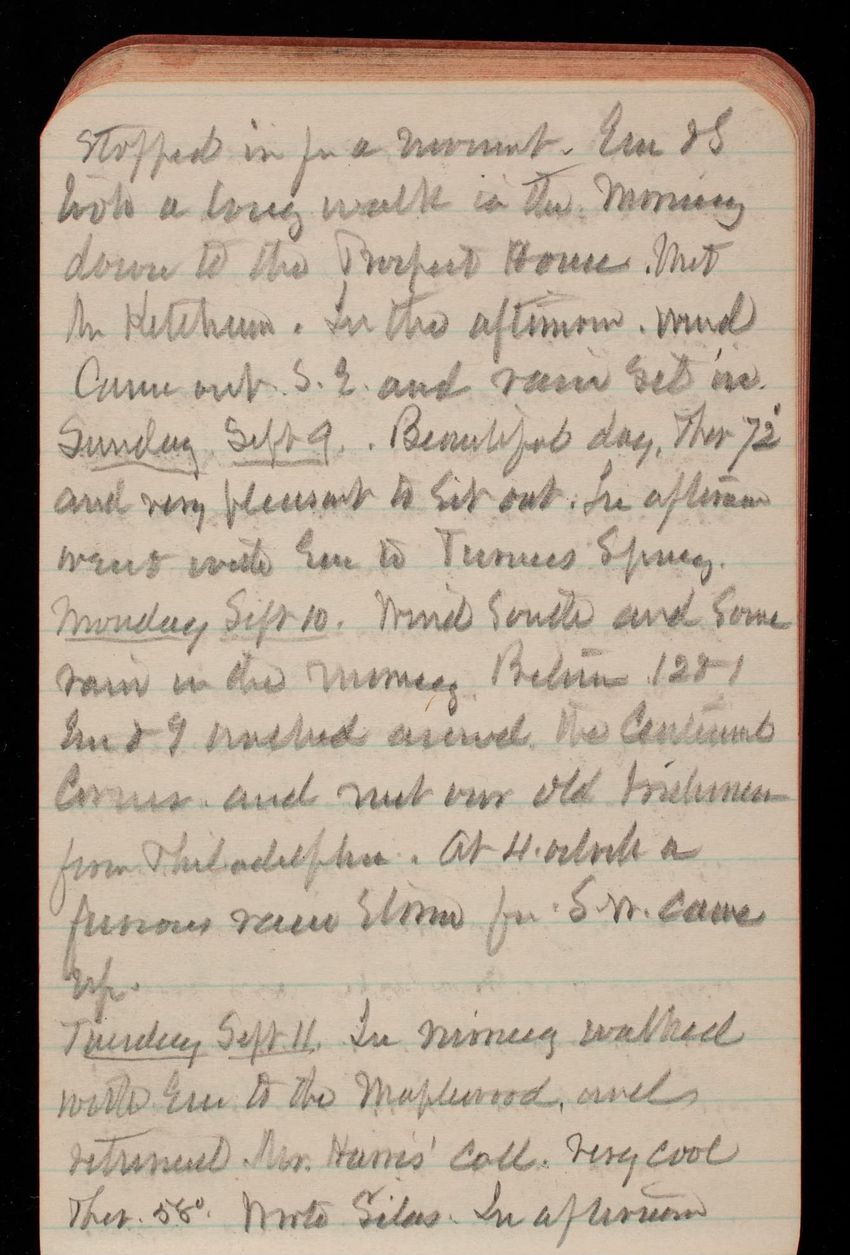 stopped in for a moment. Em & I
took a long walk in the morning
down to the Prospect House. Met
Mr Ketchum. In the afternoon. wind
came out S.E. and rain set in.
Sunday Sept 9. Beautiful day, Ther 72°
and very pleasant to sit out. In afternoon
went with Em to Turners Spring.
Monday Sept 10. Wind South and some
rain in the morning Between 12 & 1
Em & I walked around the
Corner and met our old Irishman
from Philadelphia. At 4. oclock a
furious rain storm fr S.W. came
up.
Tuesday Sept 11. In morning walked
with Em to the Maplewood, and
returned Mr. Harris' call. Very cool
Ther. 58°. Wrote Silas. In afternoon